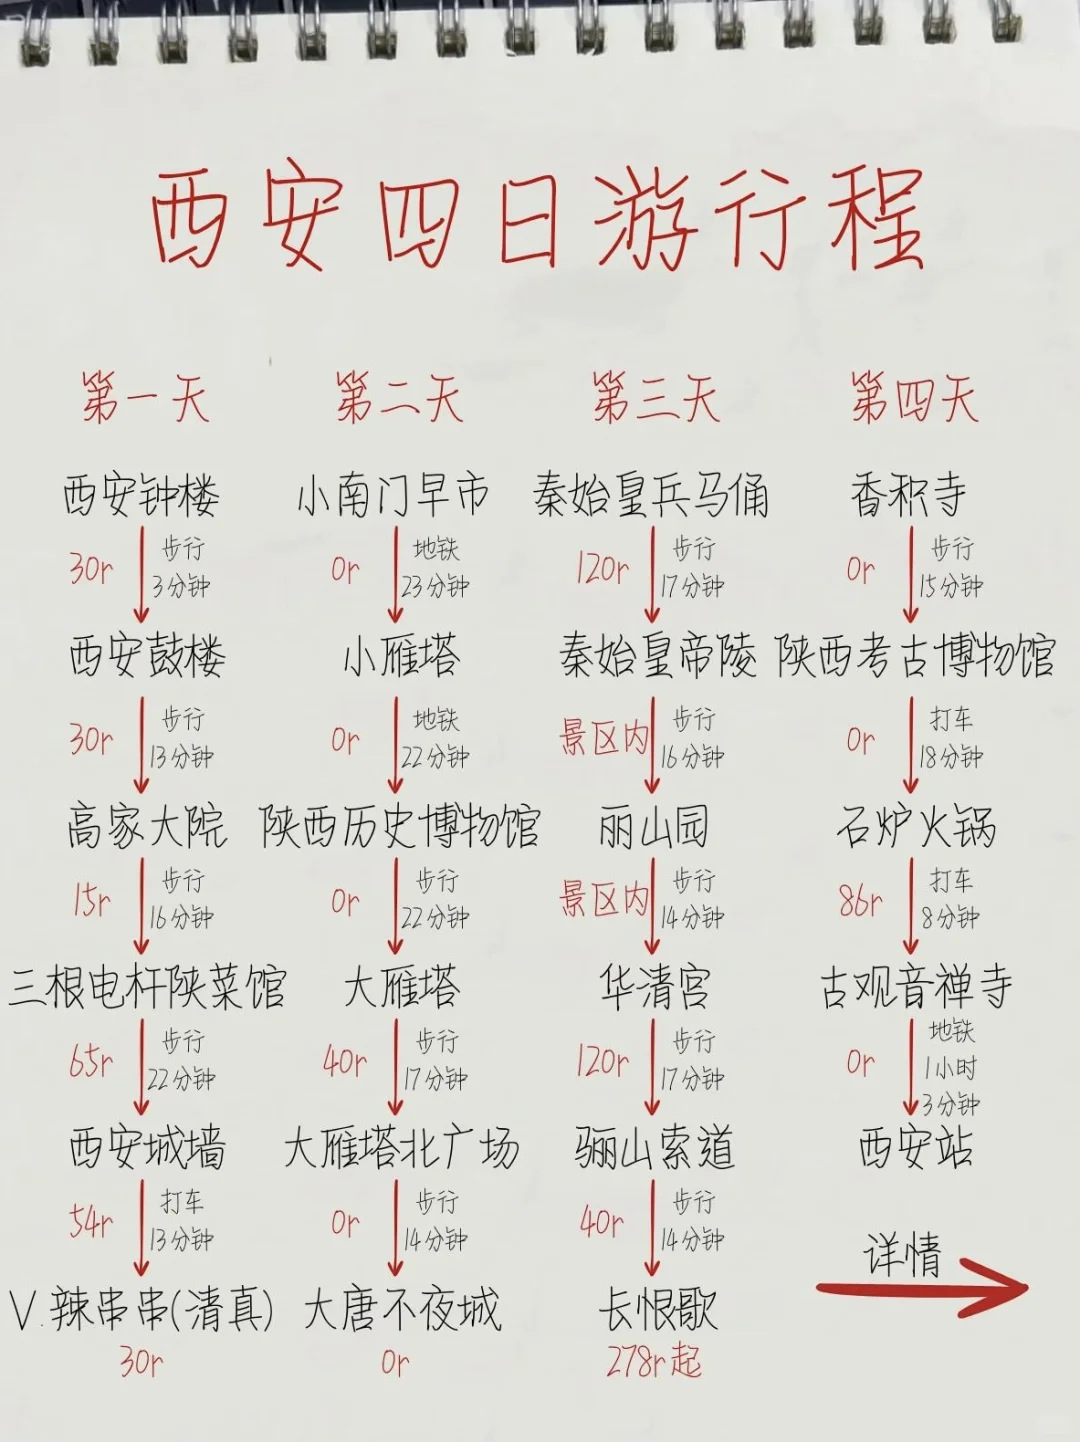 西安四日游行程
第一天
西安钟楼
30r
步行
3分钟
西安鼓楼
30r
步行
13分钟
高家大院
15r
步行
16分钟
三根电杆陕菜馆
65r
步行
22分钟
西安城墙
54r
打车
13分钟
V.辣串串(清真)
30r
第二天
小南门早市
0r
地铁
23分钟
小雁塔
0r
地铁
22分钟
陕西历史博物馆
0r
步行
22分钟
大雁塔
40r
步行
17分钟
大雁塔北广场
0r
步行
14分钟
大唐不夜城
0r
第三天
秦始皇兵马俑
120r
步行
17分钟
秦始皇帝陵
景区内
步行
16分钟
丽山园
景区内
步行
14分钟
华清宫
120r
步行
17分钟
骊山索道
40r
步行
14分钟
长恨歌
278r起
第四天
香积寺
0r
步行
15分钟
陕西考古博物馆
0r
打车
18分钟
石炉火锅
86r
打车
8分钟
古观音禅寺
0r
地铁
1小时
3分钟
西安站
详情